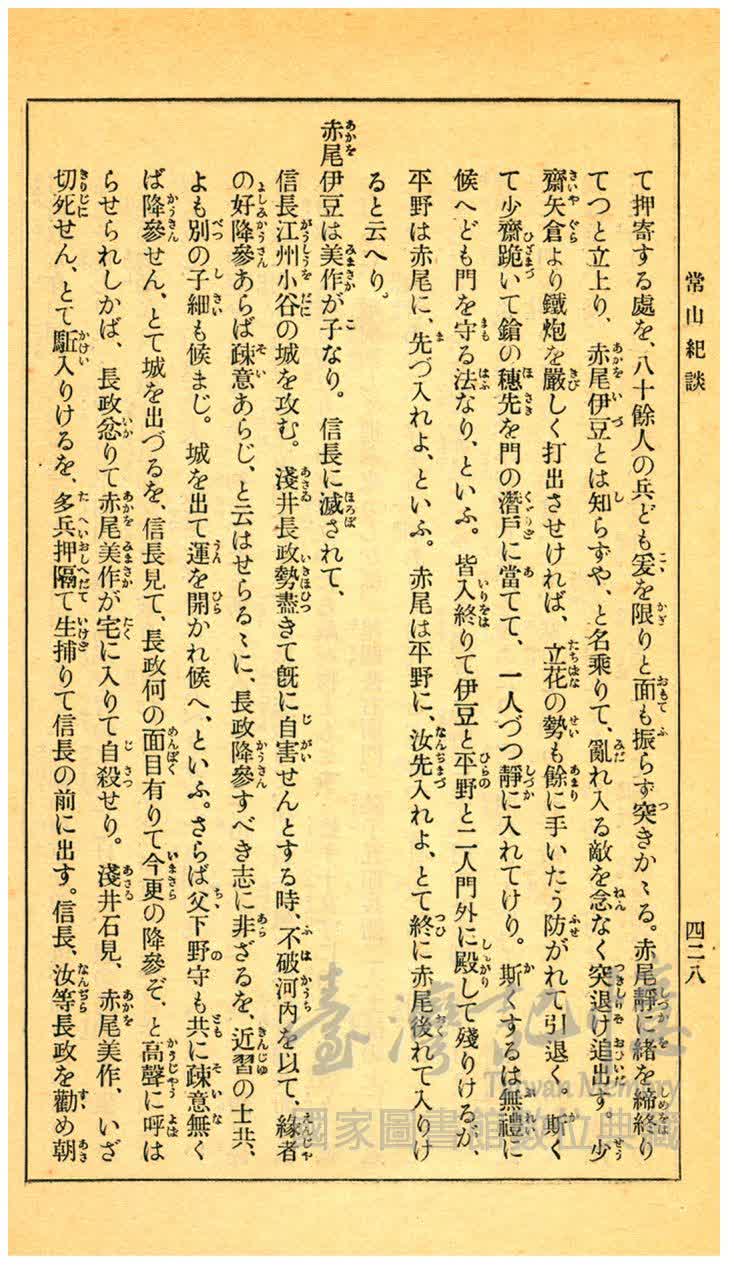 常山紀談
四二八
て押寄する處を、八十餘人の兵ども爰を限りと面も振らず突きかゝる。赤尾靜に緒を締終り
てつと立上り、赤尾伊豆とは知らずや、と名乘りて、亂れ入る敵を念なく突退け追出す。少
齋矢倉より鐵炮を嚴しく打出させければ、立花の勢も餘に手いたう防がれて引退く。斯く
て少齋跪いて鎗の穗先を門の潛戸に當てて、一人づつ靜に入れてけり。斯くするは無禮に
候へども門を守る法なり、といふ。皆入終りて伊豆と平野と二人門外に殿して殘りけるが、
平野は赤尾に、先づ入れよ、といふ。赤尾は平野に、汝先入れよ、とて終に赤尾後れて入りけ
ると云へり。
赤尾伊豆は美作が子なり。信長に滅されて、
信長江州小谷の城を攻む。淺井長政勢盡きて既に自害せんとする時、不破河内を以て、緣者
の好降參あらば疎意あらじ、と云はせらるゝに、長政降參すべき志に非ざるを、近習の士共、
よも別の子細も候まじ。城を出て運を開かれ候へ、といふ。さらば父下野守も共に疎意無く
ば降參せん、とて城を出づるを、信長見て、長政何の面目有りて今更の降參ぞ、と高聲に呼は
らせられしかば、長政忿りて赤尾美作が宅に入りて自殺せり。淺井石見、赤尾美作、いざ
切死せん、とて駈入りけるを、多兵押隔て生捕りて信長の前に出す。信長、汝等長政を勸め朝
臺灣記憶
Taiwan Memory
國家圖書館數位典藏